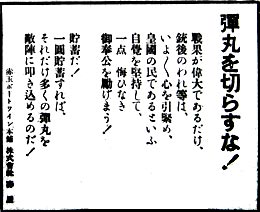 彈丸を切らすな!
戰果が偉大であるだけ、
銃後のわれ等は、
いよ〳〵心を引緊め、
皇國の民であるといふ
自覺を堅持して、
一点 悔ひなき
御奉公を勵げまう!
貯蓄だ!
一圓貯蓄すれば、
それだけ多くの彈丸を
敵陣に叩き込めるのだ!
赤玉ポートワイン本舗 株式會社 壽屋